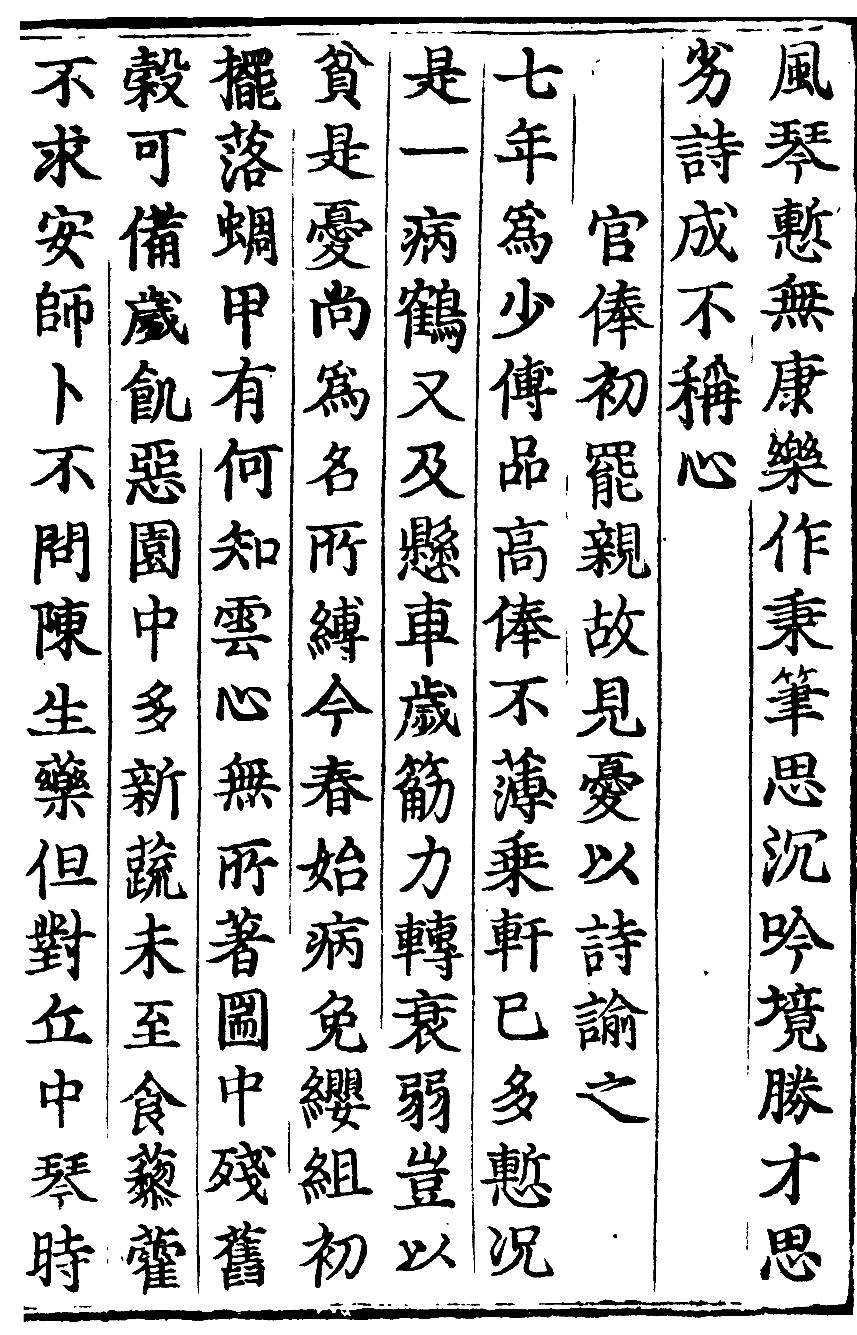 風琴慙無康樂作秉筆思沉吟境勝才思
劣詩成不稱心
官俸初罷親故見憂以詩諭之
七年爲少傅品高俸不薄乗軒巳多慙况
是一病鶴又及懸車歲筋力轉衰弱豈以
貧是憂尚爲名所縛今春始病免纓組初
擺落蜩甲有何知雲心無所著囷中殘舊
穀可備歲飢惡園中多新蔬未至食藜藿
不求安師卜不問陳生藥但對丘中琴時